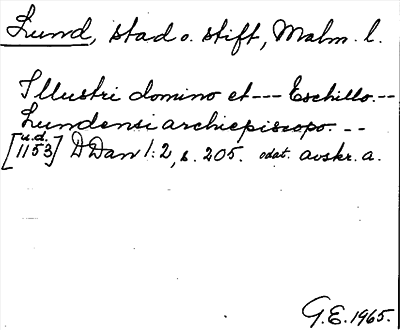 Lund, stad o. stift, Malm. l.
Illustri domino et --- Eschillo. --
Lundensi archiepiscopo. --
[u.d. 1153] DDan 1:2, s. 205. odat. avskr. a.
G.E. 1965.